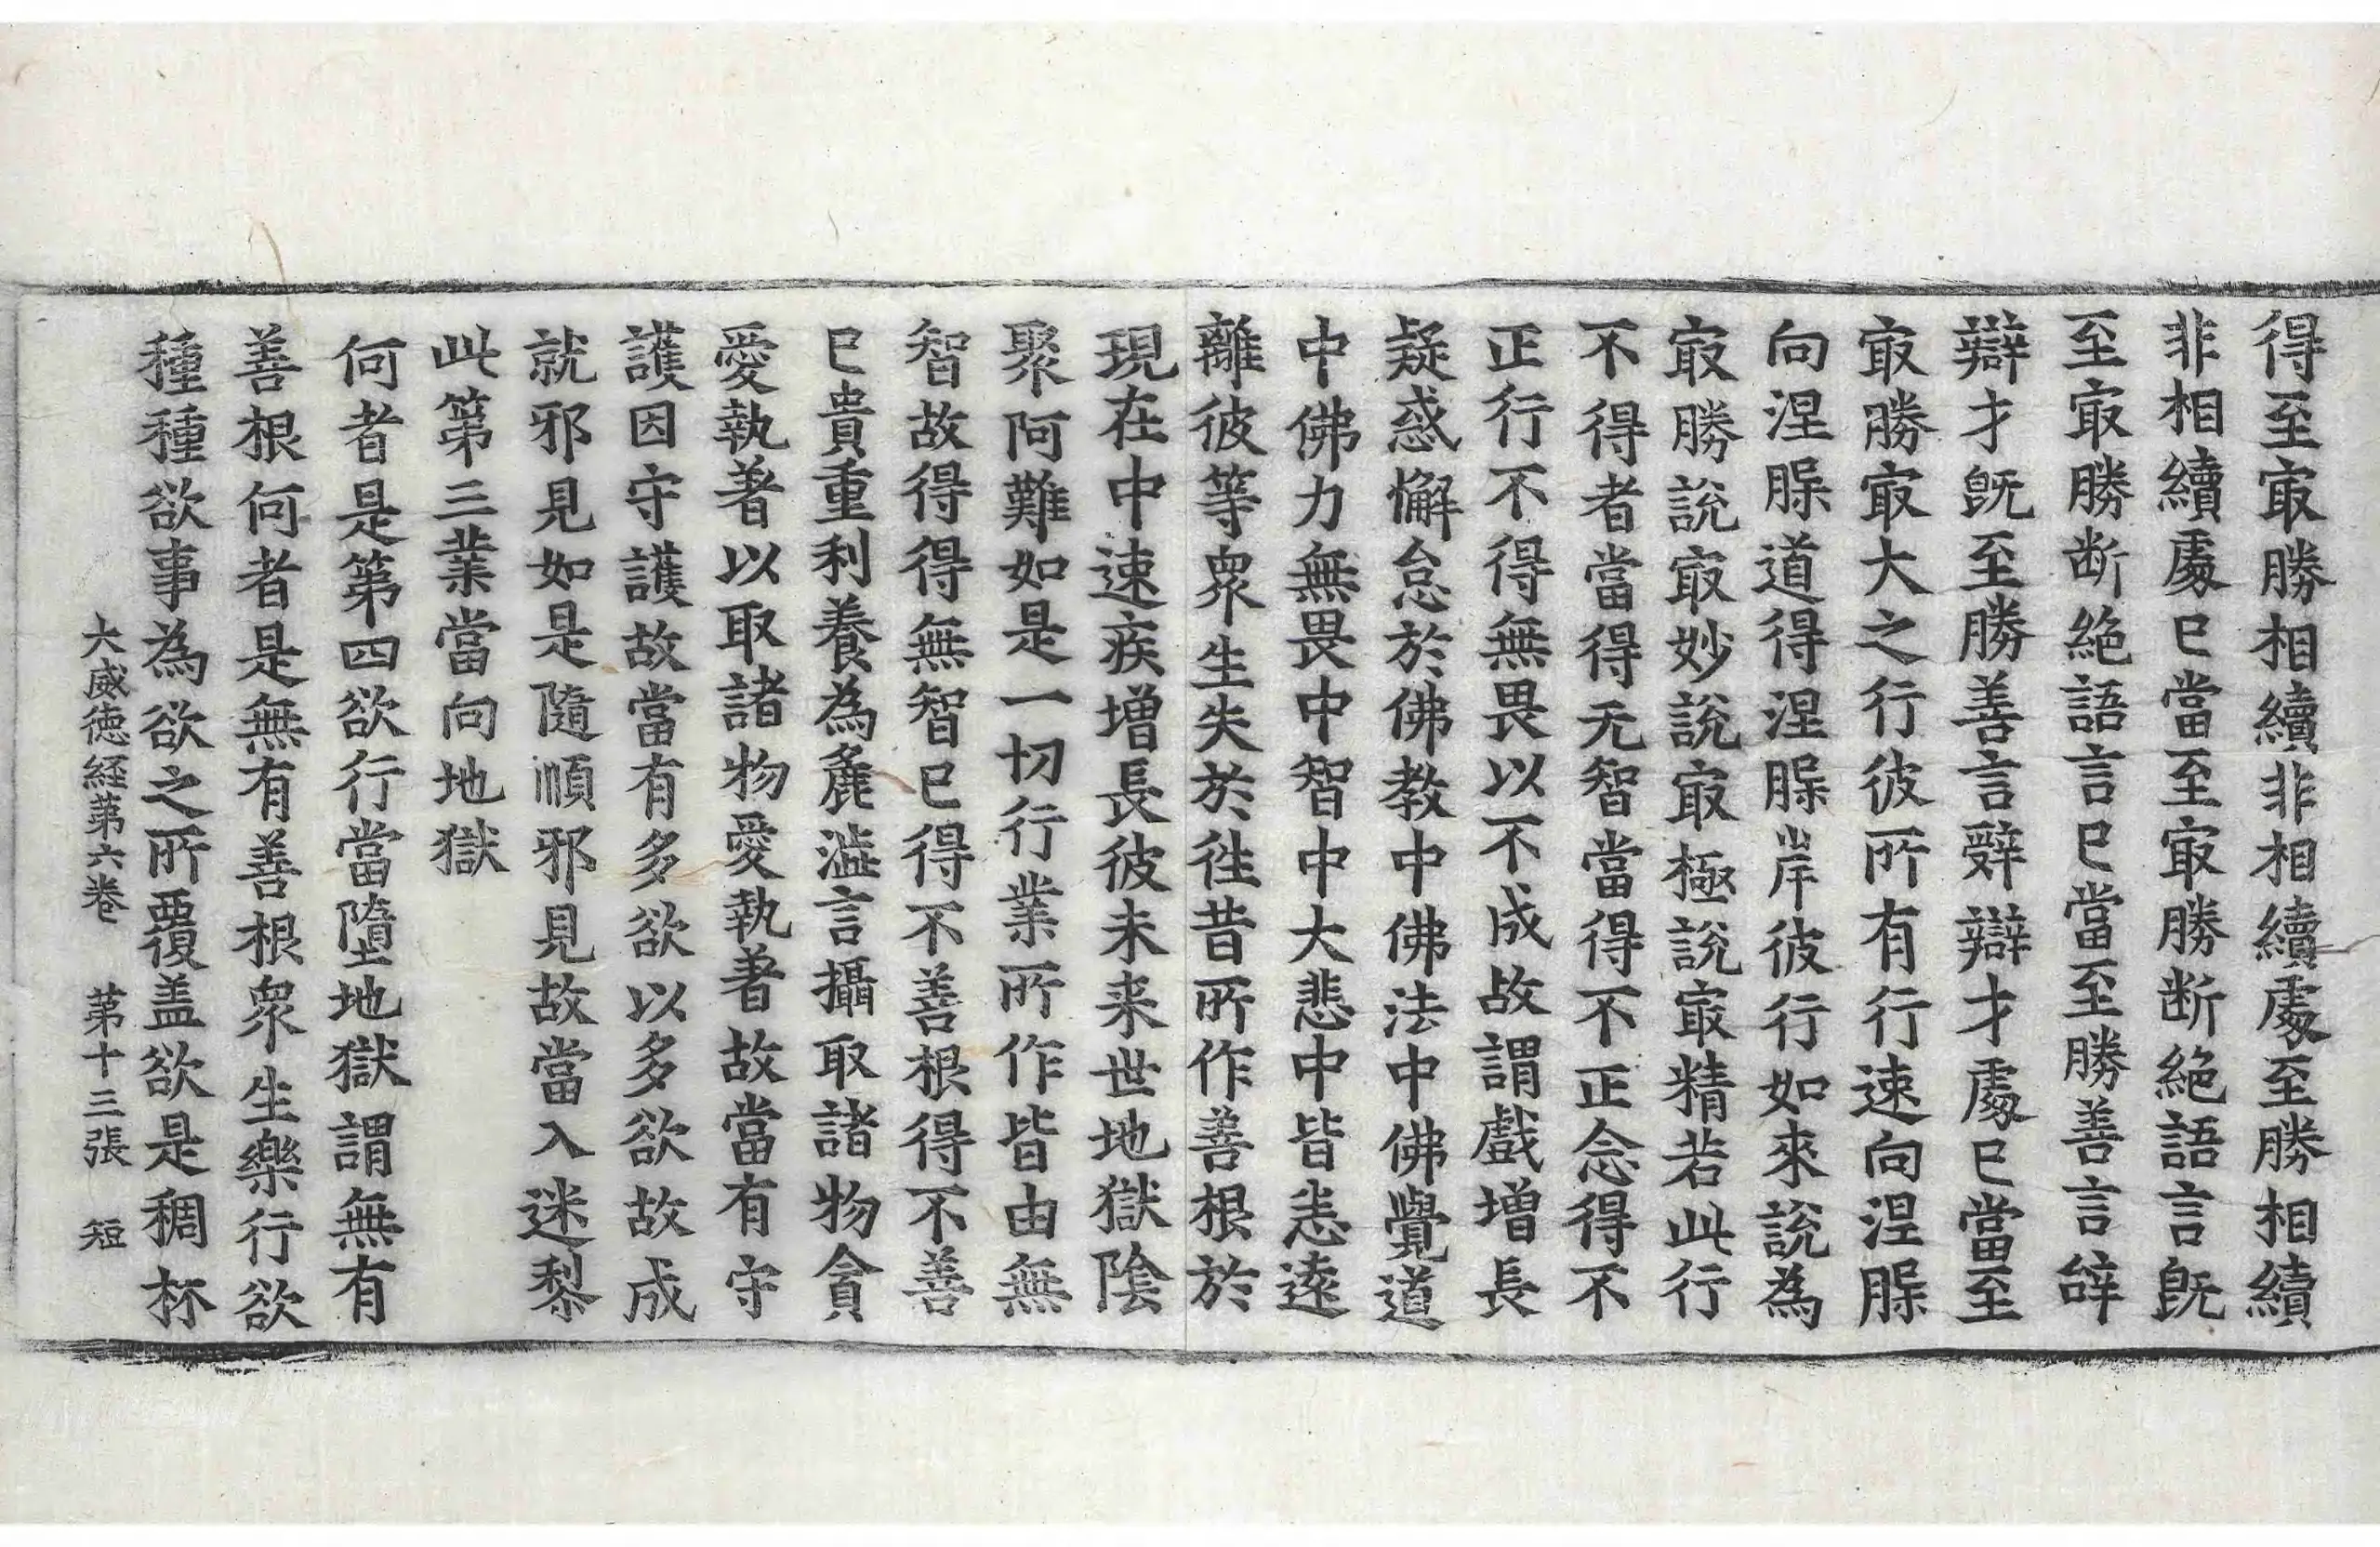 得至㝡勝相續非相續處至勝相續
非相續處已當至㝡勝断絶語言旣
至㝡勝断絶語言已當至勝善言辝
辯才旣至勝善言辤辯才處已當至
㝡勝㝡大之行彼所有行速向涅脲
向涅脲道得涅脲岸彼行如來說為
㝡勝說㝡妙說㝡極說㝡精若此行
不得者當得无智當得不正念得不
正行不得無畏以不成故謂戲增長
疑惑懈怠於佛教中佛法中佛覺道
中佛力無畏中智中大悲中皆悉遠
離彼等衆生失於徃昔所作善根於
現在中速疾增長彼未来世地獄陰
聚阿難如是一切行業所作皆由無
智故得得無智已得不善根得不善
已貴重利養為麁澁言攝取諸物貪
愛執著以取諸物愛執著故當有守
護因守護故當有多欲以多欲故成
就邪見如是隨順邪見故當入迷黎
此第三業當向地獄
何者是第四欲行當墮地獄謂無有
善根何者是無有善根衆生樂行欲
種種欲事為欲之所覆盖欲是稠杯
大威徳経第六卷 第十三張 短